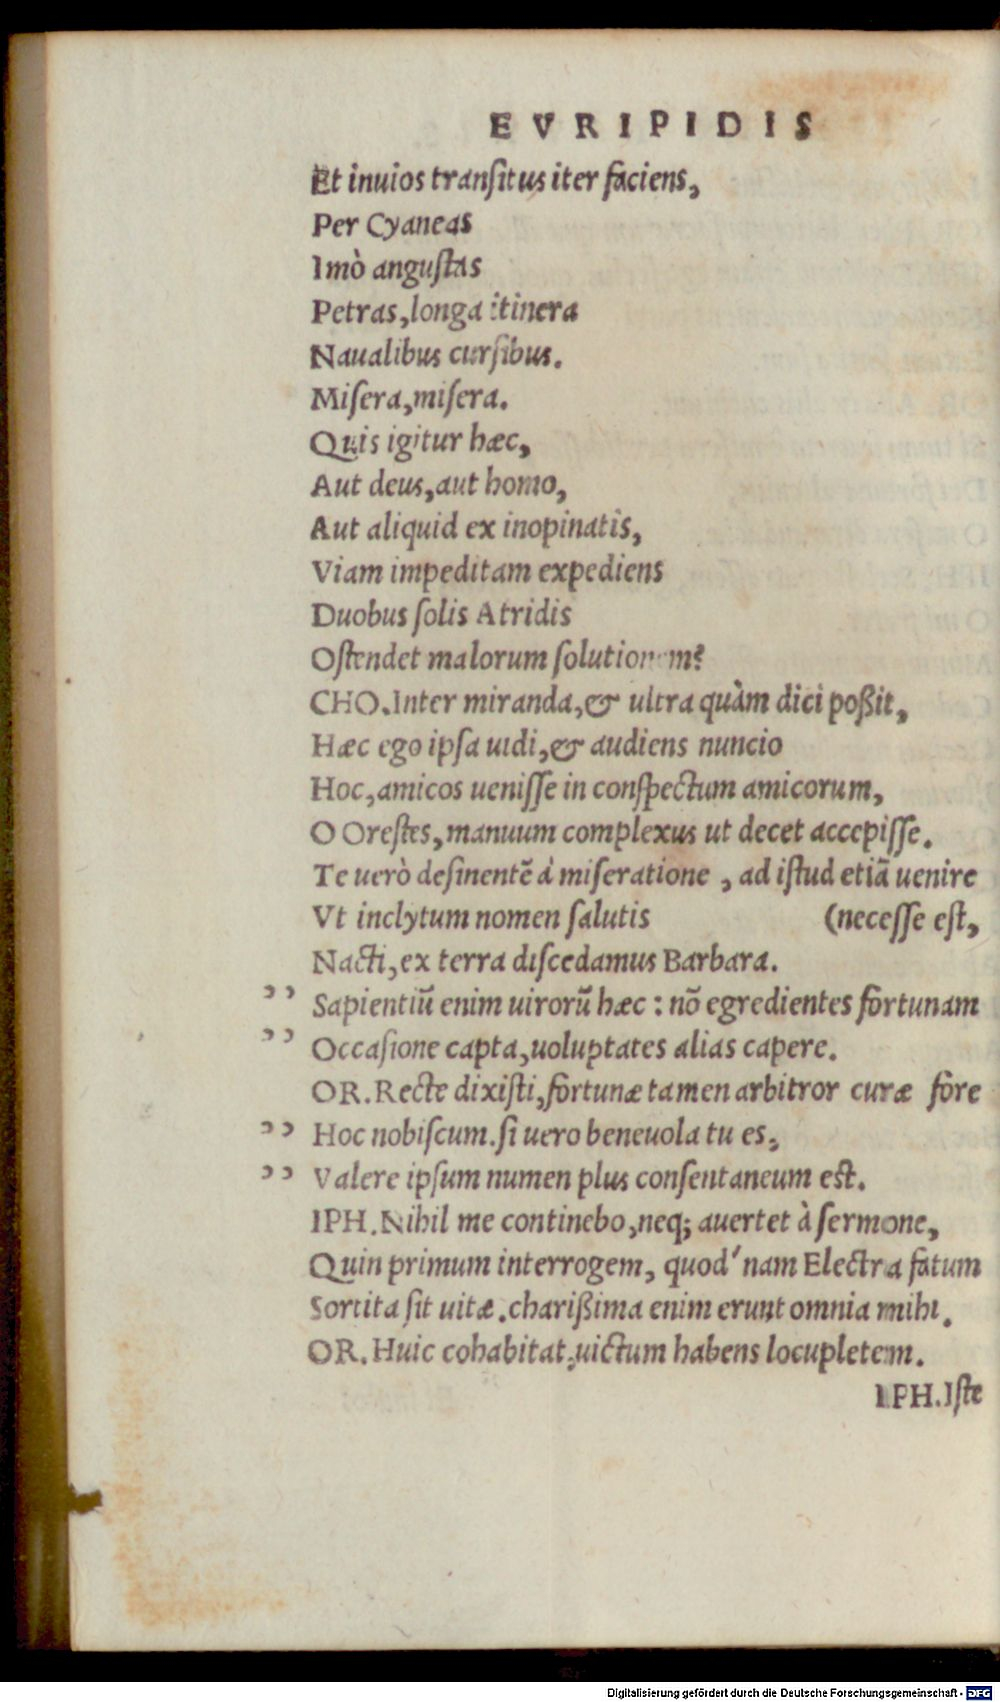 EVRIPIDIS
Et inuios tranſitus iter faciens,
Per Cyaneas
Imò anguſtas
Petras,longa itinera
Naualibus curſibus.
Miſera,miſera.
Quis igitur hæc,
Aut deus,aut homo,
Aut aliquid ex inopinatis,
Viam impeditam expediens
Duobus ſolis Atridis
Oſtendet malorum ſolutionem?
CHO.Inter miranda,& ultra quàm dici poßit,
Hæc ego ipſa uidi,& audiens nuncio
Hoc,amicos ueniſſe in conſpectum amicorum,
O Oreſtes,manuum complexus ut decet accepiſſe.
Te uerò deſinentē à miſeratione , ad iſtud etiā uenire
Vt inclytum nomen ſalutis (neceſſe eſt,
Nacti,ex terra diſcedamus Barbara.
”Sapientiū enim uirorū hæc : nō egredientes fortunam
”Occaſione capta,uoluptates alias capere.
OR.Recte dixiſti,fortunæ tamen arbitror curæ fore
”Hoc nobiſcum.ſi uero beneuola tu es,
”Valere ipſum numen plus conſentaneum eſt.
IPH.Nihil me continebo,neq; auertet à ſermone,
Quin primum interrogem, quod'nam Electra fatum
Sortita ſit uitæ.charißima enim erunt omnia mihi.
OR.Huic cohabitat,uictum habens locupletem.
IPH.Iſte
Digitalisierung gefördert durch die Deutsche Forschungsgemeinschaft - DFG